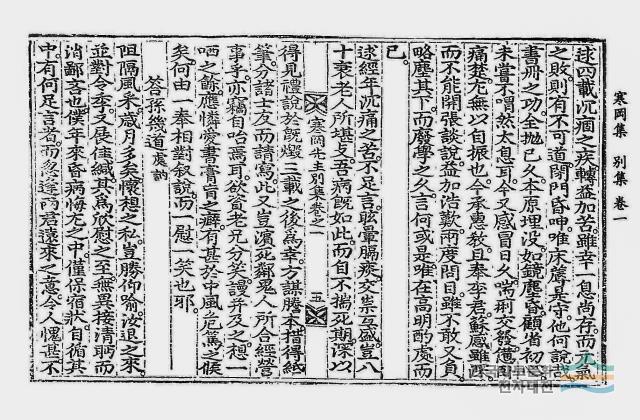 寒岡集 別集 卷一
逑四載沉痼之疾轉益加苦雖幸一息尚存而元氣
之敗則有不可道閉門昏呻唯床薦是守他何說哉
書冊之功全抛已久本原埋沒如鏡塵昏顧省初
未嘗不喟然太息耳今又感冒日久喘痢交發憊
痛楚尤無以自振也今承惠敎且奉李君蘇感雖
而不能開張談說益加浩歎兩度問目雖不敢又負
略塵其下而廢學之久言何或是唯在高明酌處而
已
逑經年沉痛之苦不足言眩暈膈痰交祟互盛豈八
十衰老人所堪支吾病旣如此而自不揣死期深以
寒岡先生別集卷之一 五
得見禮說於旣燼三載之後爲幸方謀謄本措得紙
筆分諸士友而請寫此又豈濱死鄰鬼人所合經營
事乎亦竊自咍焉耳欲資老兄分笑謾幷及之想一
哂之餘應憐愛書膏肓之癖有甚於中風危篤之候
矣何由一奉相對叙說而一慰一笑也耶
答孫幾道處訥
阻隔風采歲月多矣懷想之私豈勝仰喩汝退之來
並對令季又展佳緘其爲欣慰之至無異接淸眄而
消鄙吝也僕年來昏病悔尤之中僅保宿狀自循其
中有何足言者而忽逢兩君遠來之意令人愧甚不